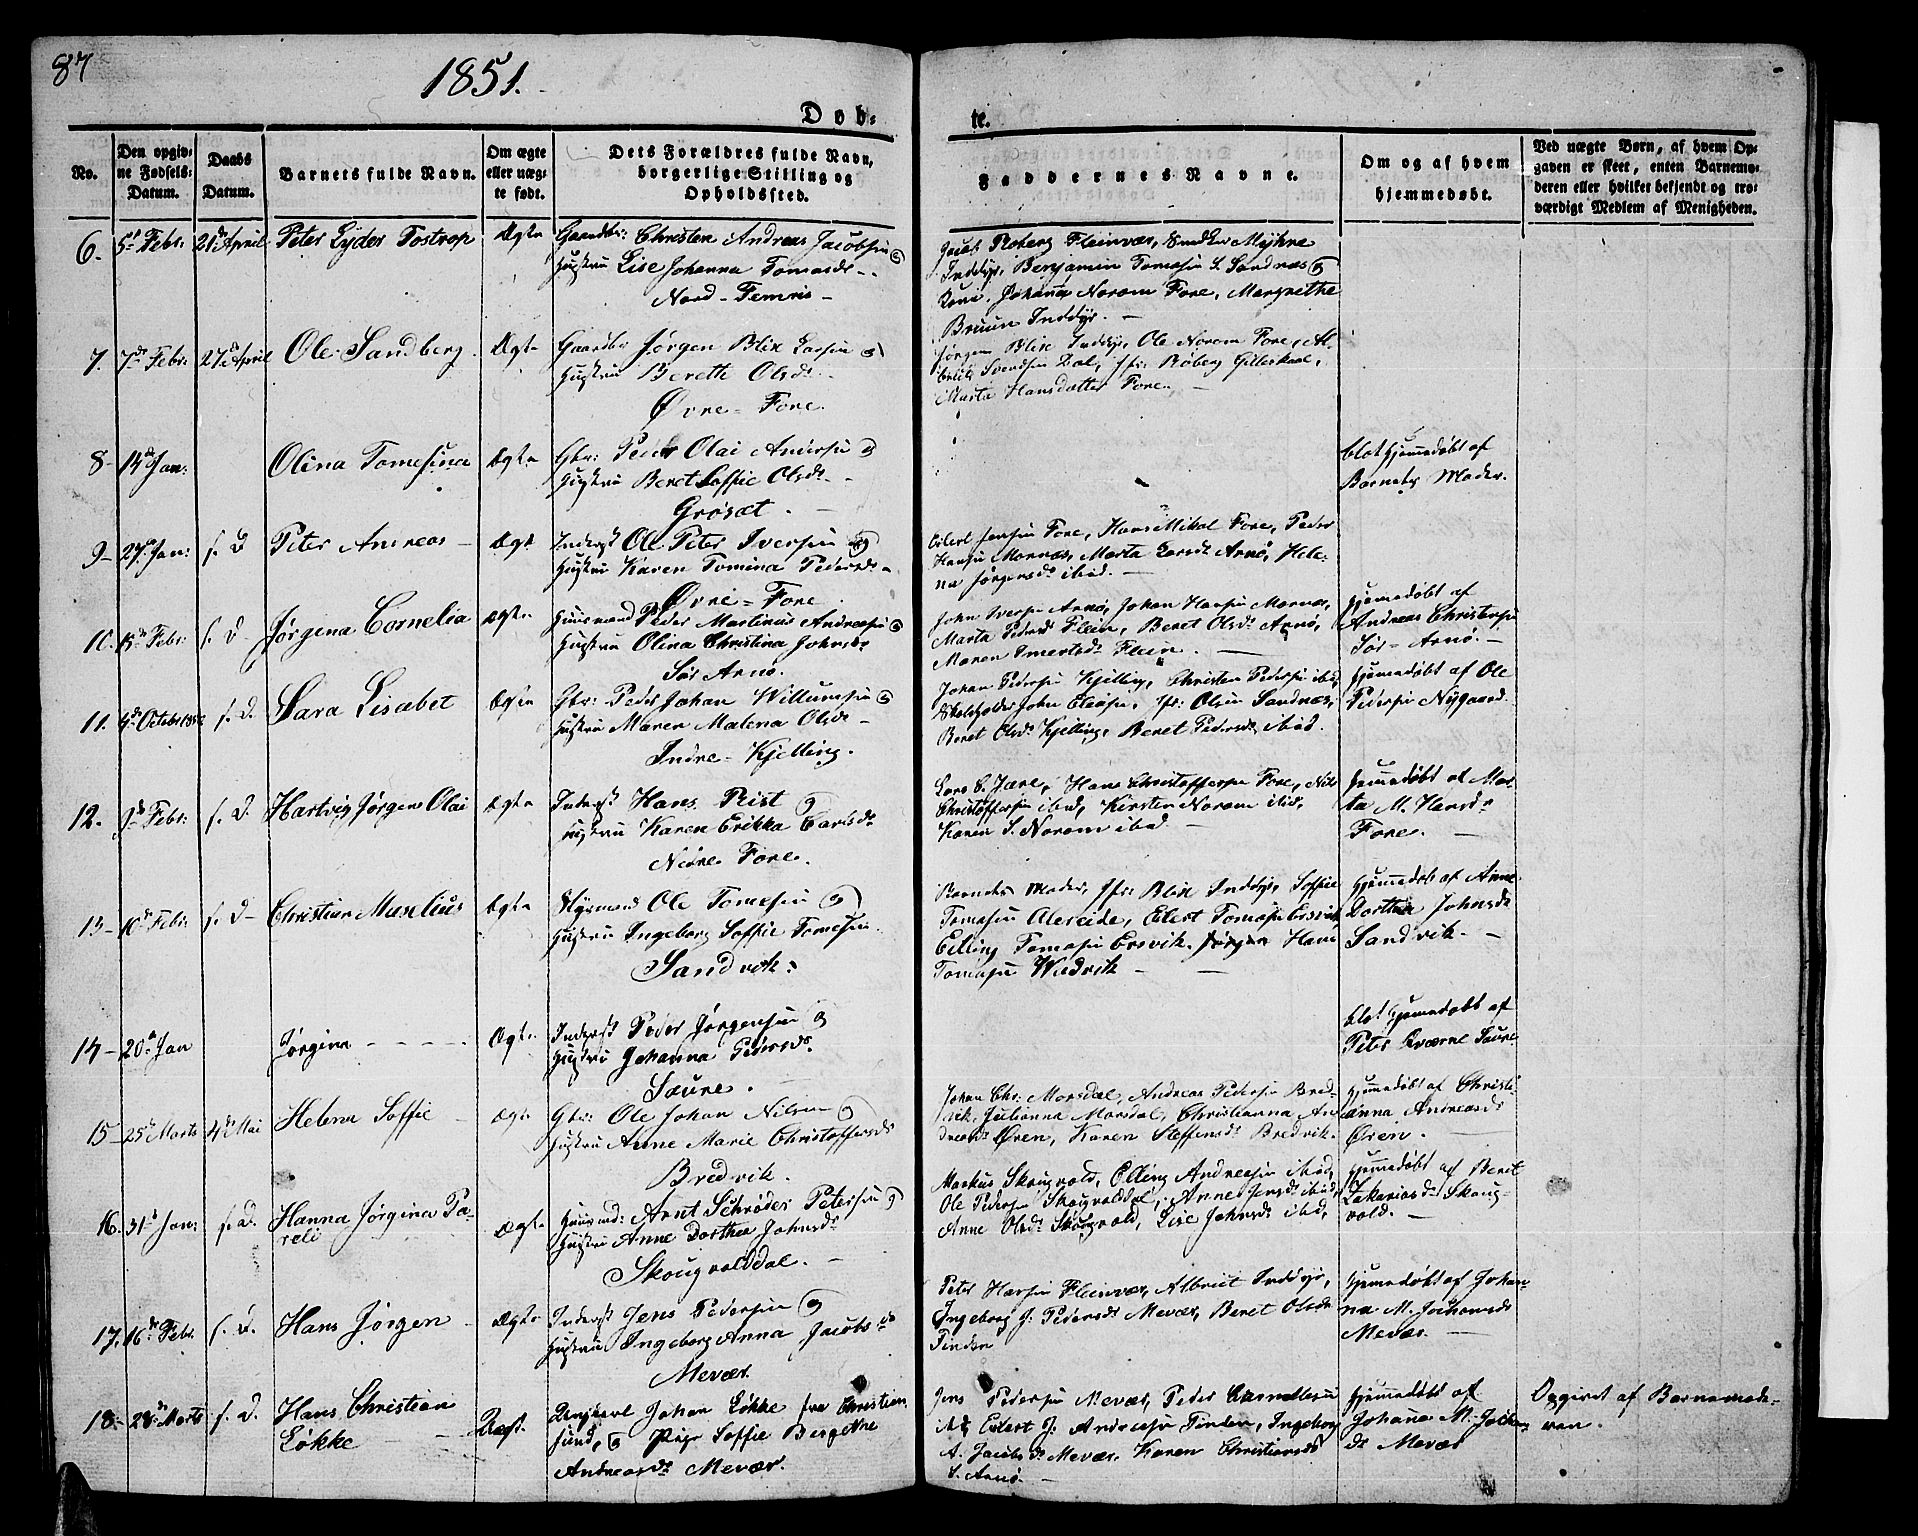 87
1851.
Døb-
te.
No.
Den opgiv-
ne Fødsels-
Datum.
Daabs
Datum.
Barnets fulde Navn.
Om ægte
eller uæg-
te født.
Dets Forældres fulde Navn,
borgerlige Stilling og
Opholdssted.
Faddernes Navne.
Om og af hvem
hjemmedøbt.
Ved uægte Børn, af hvem Op-
gaven er skeet, enten Barnemo-
deren eller hvilket bekjendt og tro-
værdigt Medlem af Menigheden.
6. 5te Febr: 21de April Peter Lyder Tostrop Ægte
Gaardbr: Christen Andreas Jacobsen og
Hustru Lise Johanna Tomasdr -
Nord-Femris -
Jacob Roberg Fleinvær, Myhre
Inddyr, Benjamin Tomesen S. Sandnæs og
Kone, Johanna Norom Fore, Margrethe
Bruun Inddyr. -
7. 7de Febr: 27de April Ole Sandberg Ægte
Gaardbr Jørgen Blix Larsen og
Hustru Bereth Olsdr -
Øvre-Fore.
Jørgen Blix Inddyr, Ole Norom Fore, Al-
brikt Svendsen Dal, Jfr: Røberg Gilleskaal,
Marta Hansdatter Fore. -
8- 14de Jan: Olina Tomesina Ægte
Gbr: Peder Olai Andersen og
Hustru Beret Soffie Olsdr -
Grøsæt.
blot hjemedøbt af
Barnets Moder.
9- 27de Jan: s. D Peter Andreas - Ægte
Inderst Ole Peter Iversen og
Hustru Karen Tomina Pedersdr -
Øvre-Fore.
Eilert Jensen Fore, Hans Mikal Fore, Peder
Hansen Mornæs, Marta Larsdr Arnö, Hele-
na Jørgensdr ibid. -
10. s. D. Jørgena Cornelia Ægte
Huusmand Peder Martinus Andreasen og
Hustru Olina Christina Johnsdr
Sør Arnö.
John Iversen Arnö, Johan Hansen Mornæs,
Marta Pedersdr Flein, Beret Olsdr Arnö,
Maren Flein. -
hjemedøbt af
Andreas Christensen
Sør-Arnö. -
11. 4de Octobr 1850 s. D. Sara Lisabet Ægte
Gbr: Peder Johan Willumsen og
Hustru Maren Malena Olsdr -
Indre-Kjelling.
Johan Pedersen Kjelling, Christen Pedersen ibid,
Skoleholder John Eliasen, Jfr: Olsen Sandnæs,
Beret Olsdr Kjelling, Beret Pedersdr ibid.
hjemedøbt af Ole
Pedersen Nygaard.
12. Febr: s. D. Hartvig Jørgen Olai Ægte
Inderst Hans Rist og
Hustru Karen Erikka Carlsdr
Nedre Fore.
Lars C. Jære, Hans Christoffersen Fore, Nils
Christoffersen ibid, Kirsten Norom ibid,
Karen S. Norom ibid. -
hjemedøbt af Mar-
ta M. Hansdr
Fore. -
13- 10de Febr: s. D- Christian Marelius Ægte
Styrmand Ole Tomesen og
Hustru Ingeborg Soffie Tomesen
Sandvik.
Barnets Moder, Jfr: Blix Inddyr, Soffie
Tomesen Alereide, Eilert Tomesen Ersvik,
Elling Tomasen Ersvik, Jørgen Hans
Tomasen Widvik -
hjemedøbt af Anne
Dorthea Johnsdr
Sandvik. -
14- 20de Jan Jørgine - - - - Ægte
Inderst Peder Jørgensen og
Hustru Johanna Pedersdr.
Saure.
blot hjemedøbt af
Peter Kværne Saure
15- 25de Marts 4de Mai Helena Soffie - Ægte
Gbr: Ole Johan Nilsen og
Hustru Anne Marie Christoffersdr
Bredvik.
Johan Chr: Morsdal, Andreas Pedersen Bred-
vik, Julianna Morsdal, Christianna An-
dreasdr Øren, Karen Steffensdr Bredvik.
hjemedøbt af Christi-
anna Andreasdr
Øren. -
16. 31de Jan: s. D. Hanna Jørgina Pa-
reli
Ægte
Huusmd: Arnt Schrøder Petersen og
Hustru Anne Dorthea Johnsdr
Skougvolddal. -
Markus Skougvold, Elling Andreasen ibid,
Ole Pedersen Skougvolddal, Anne Jensdr ibid,
Anne Olsdr Skougvold, Lise Johnsdr ibid,
hjemedøbt af Beret
Zakariasdr Skoug-
vold. -
17. 16de Febr. s. D. Hans Jørgen - Ægte
Inderst Jens Pedersen og
Hustru Ingeborg Anna Jacobsdr
Mevær.
Peter Hansen Fleinvær, Albrikt Inddyr,
Ingeborg J. Pedersdr Mevær, Beret Olsdr
Finden
hjemedøbt af Johan-
na M. Jochomsdr
Mevær. -
18- 28de Marts s. D. Hans Christian
Løkke -
Uægt.
Ungkarl Johan Løkke fra Christian-
sund, og Pige Soffie Bergetine
Andreasdr Mevær.
Jens Pedersen Mevær, Peder Cornelesen
ibd, Eilert J. Andreasen Finden, Ingeborg
A. Jacobsdr Mevær. Karen Christiansdr
S. Arnö -
hjemedøbt af
Johana M. Jochom-
dr Mevær
Opgivet af Barnemode-
ren.